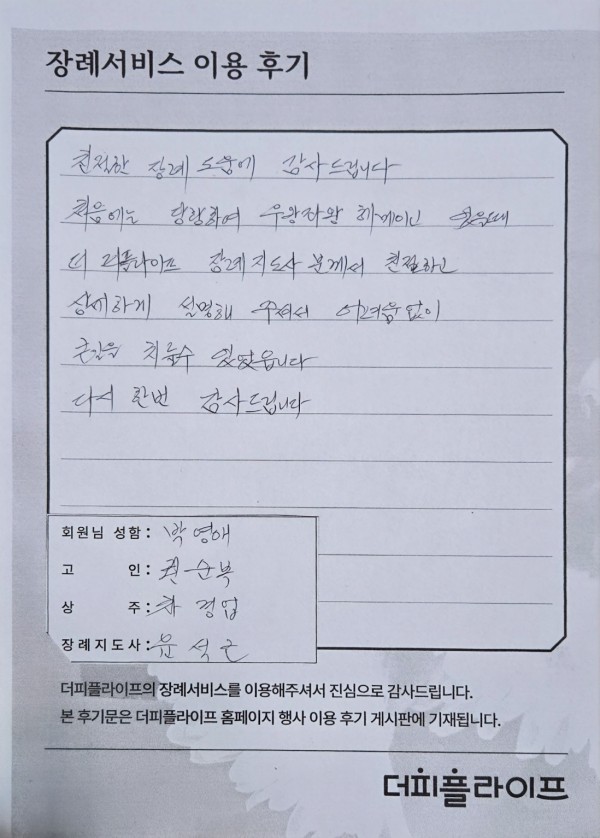 장례서비스 이용 후기
친절한 장례 도움에 감사드립니다
처음에는 당황하여 우왕좌왕 헤메이고 있을때
더 피플라이프 장례지도사 분께서 친절하고
상세하게 설명해 주셔서 어려움없이
큰일을 치를수 있었읍니다
다시 한번 감사드립니다
회원님 성함 : 박영애
고 인 : 권순복
상 주 : 경업
장례지도사 : 윤석근
더피플라이프의 장례서비스를 이용해주셔서 진심으로 감사드립니다.
본 후기문은 더피플라이프 홈페이지 행사 이용 후기 게시판에 기재됩니다.
더피플라이프